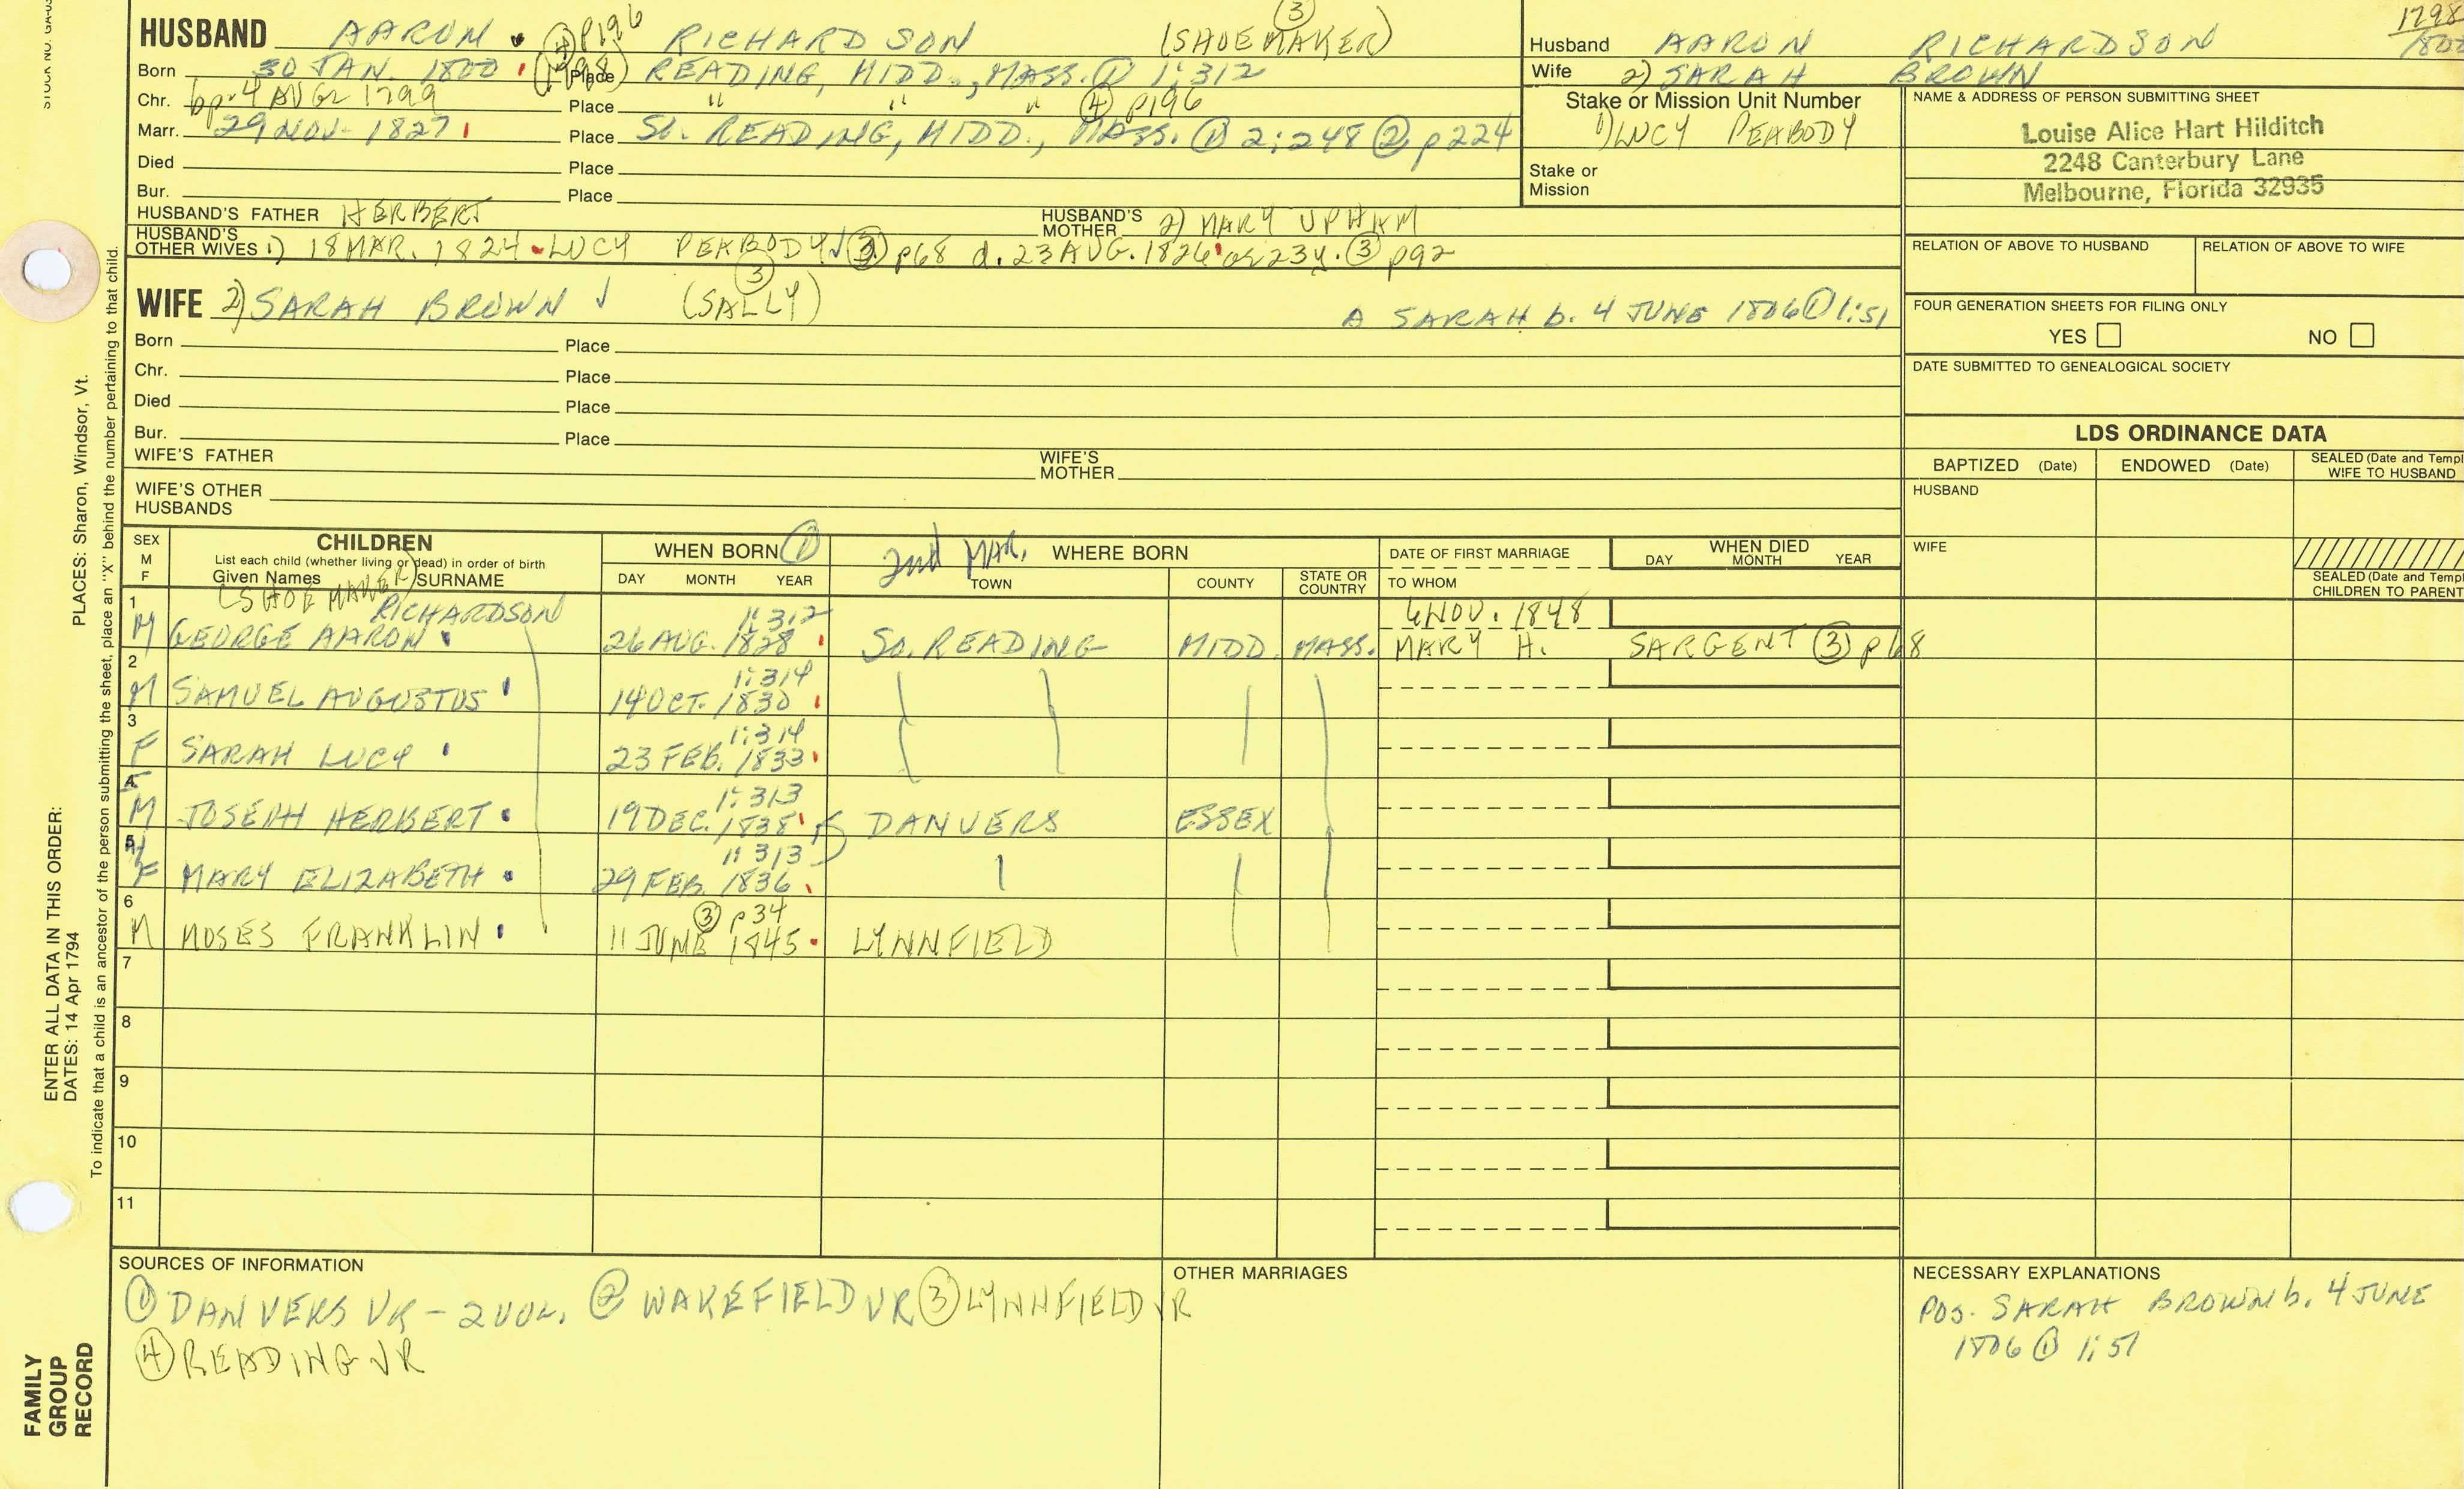 STOCK NO. GA-0
HUSBAND AARON ④ p196 RICHARDSON (SHOEMAKER) ③
Born 30 JAN. 1800 (1798) Place READING, MIDD., MASS. ① 1:312
Chr. bp. 4 AUG 1799 Place " " " ④ p196
Marr. 29 NOV. 1827 Place So. READING, MIDD., MASS. ① 2:248 ② p224
Died Place
Bur. Place
HUSBAND'S FATHER HERBERT HUSBAND'S MOTHER 2) MARY UPHAM
HUSBAND'S OTHER WIVES 1) 18 MAR. 1824 LUCY PEABODY √ ③ p68 d. 23 AUG. 1826 ae 23y. ③ p92
WIFE 2) SARAH BROWN √ (SALLY) ③ A SARAH b. 4 JUNE 1806 ① 1:51
Born Place
Chr. Place
Died Place
Bur. Place
WIFE'S FATHER WIFE'S MOTHER
WIFE'S OTHER HUSBANDS
1798
Husband AARON RICHARDSON
Wife 2) SARAH BROWN
Stake or Mission Unit Number
1) LUCY PEABODY
Stake or Mission
NAME & ADDRESS OF PERSON SUBMITTING SHEET
Louise Alice Hart Hilditch
2248 Canterbury Lane
Melbourne, Florida 32935
RELATION OF ABOVE TO HUSBAND RELATION OF ABOVE TO WIFE
FOUR GENERATION SHEETS FOR FILING ONLY
YES NO
DATE SUBMITTED TO GENEALOGICAL SOCIETY
LDS ORDINANCE DATA
BAPTIZED (Date) ENDOWED (Date) SEALED (Date and Templ WIFE TO HUSBAND
HUSBAND
WIFE
SEALED (Date and Templ CHILDREN TO PARENT
SEX M F
CHILDREN
List each child (whether living or dead) in order of birth
Given Names SURNAME
WHEN BORN ①
DAY MONTH YEAR
2nd MAR. WHERE BORN
TOWN COUNTY STATE OR COUNTRY
DATE OF FIRST MARRIAGE
TO WHOM
WHEN DIED
DAY MONTH YEAR
(SHOEMAKER) RICHARDSON
1 M GEORGE AARON 1:312 26 AUG. 1828 So. READING MIDD. MASS. 6 NOV. 1848
MARY H. SARGENT ③ p68
2 M SAMUEL AUGUSTUS 1:314 14 OCT. 1830
3 F SARAH LUCY 1:314 23 FEB. 1833
M JOSEPH HERBERT 1:313 19 DEC. 1838 DANVERS ESSEX
F MARY ELIZABETH 1:313 29 FEB. 1836
6 M MOSES FRANKLIN ③ p34 11 JUNE 1845 LYNNFIELD
7
8
9
10
11
SOURCES OF INFORMATION
① DANVERS VR - 2 VOL. ② WAKEFIELD VR ③ LYNNFIELD VR
④ READING VR
OTHER MARRIAGES
NECESSARY EXPLANATIONS
POS. SARAH BROWN b. 4 JUNE
1806 ① 1:51
ENTER ALL DATA IN THIS ORDER:
DATES: 14 Apr 1794
PLACES: Sharon, Windsor, Vt.
To indicate that a child is an ancestor of the person submitting the sheet, place an "X" behind the number pertaining to that child.
FAMILY
GROUP
RECORD